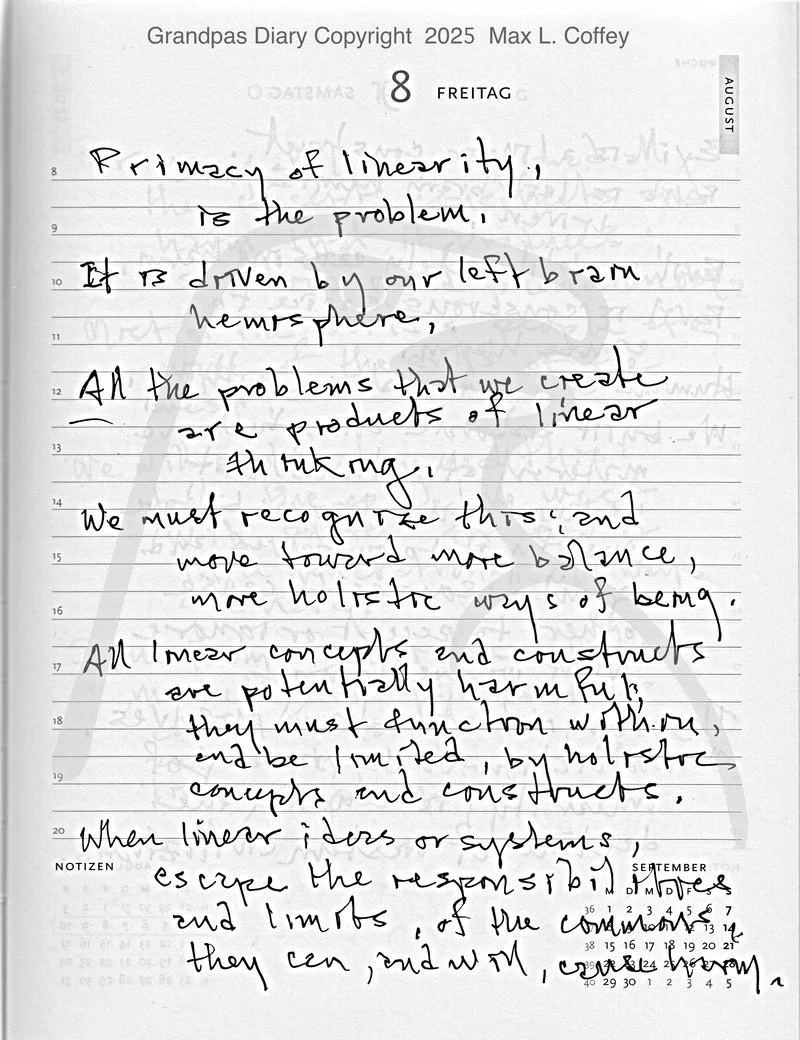 Grandpas Diary Copyright 2025 Max L. Coffey
8 FREITAG
AUGUST
8 Primacy of linearity,
is the problem.
9
10 It is driven by our left brain
hemisphere,
11
12 All the problems that we create
are products of linear
13 thinking.
14 We must recognize this; and
15 move toward more balance,
more holistic ways of being.
16
17 All linear concepts and constructs
are potentially harmful;
18 they must function within,
and be limited, by holistic
19 concepts and constructs.
20 When linear ideas or systems,
NOTIZEN
escape the responsibilities
and limits, of the commons,
they can, and will, cause harm.
SEPTEMBER
M D M D F S S
36 1 2 3 4 5 6 7
13 14
38 15 16 17 18 19 20 21
40 29 30 1 2 3 4 5